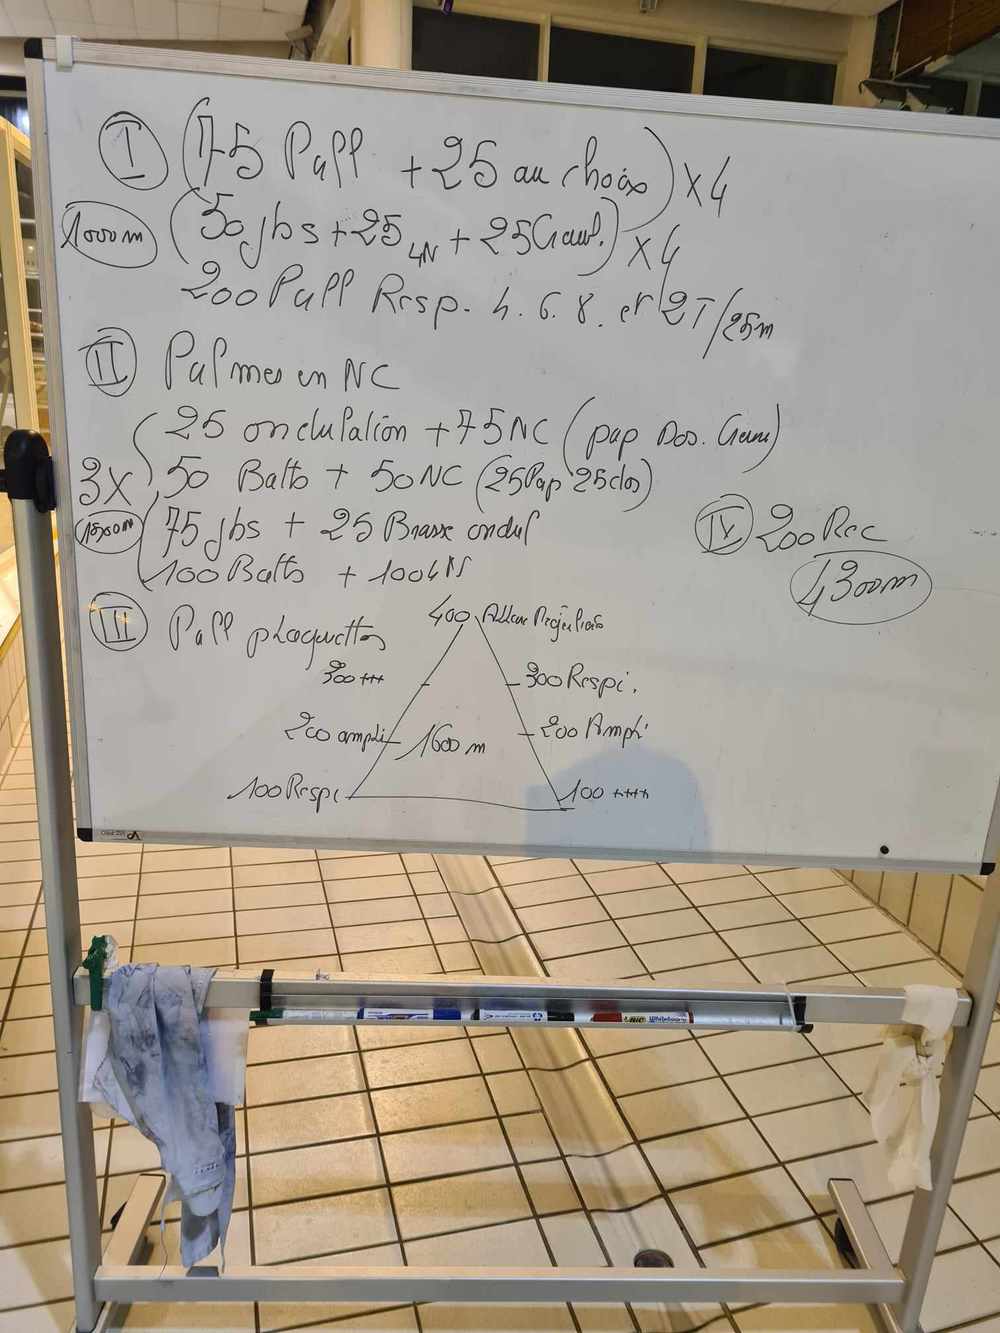 I (75 Pull + 25 au choix) x4
1000m (50 jbs + 25 4N + 25 Crawl.) x4
200 Pull Resp. 4. 6. 8. et 2T/25m
II Palmes en NC
25 ondulation + 75 NC (pap Dos. Craw)
3x 50 Batts + 50 NC (25 Pap 25 dos)
1500m 75 jbs + 25 Brasse ondul
100 Batts + 100 4N
IV 200 Rec
4300m
III Pull plaquettes
400 Allure Régulière
300 +++
300 Respi.
200 ampli
1600 m
200 Ampli
100 Respi
100 ++++
BIC